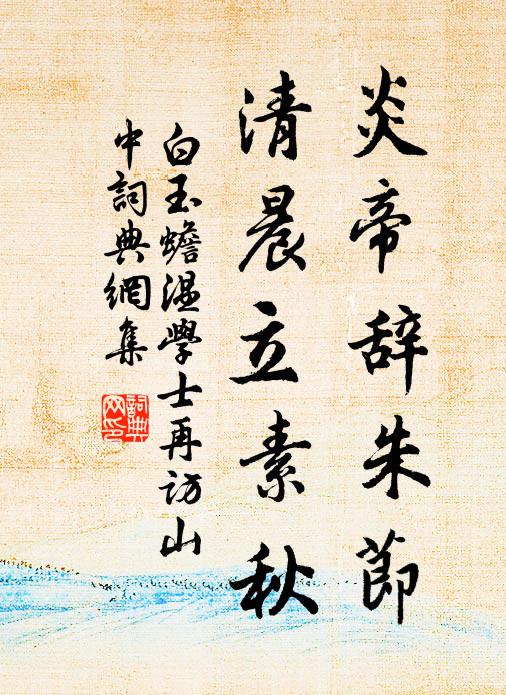 炎帝辞朱节
清晨立素秋
白玉蟾湿學士再访山
中詞典網集
詞典
网印